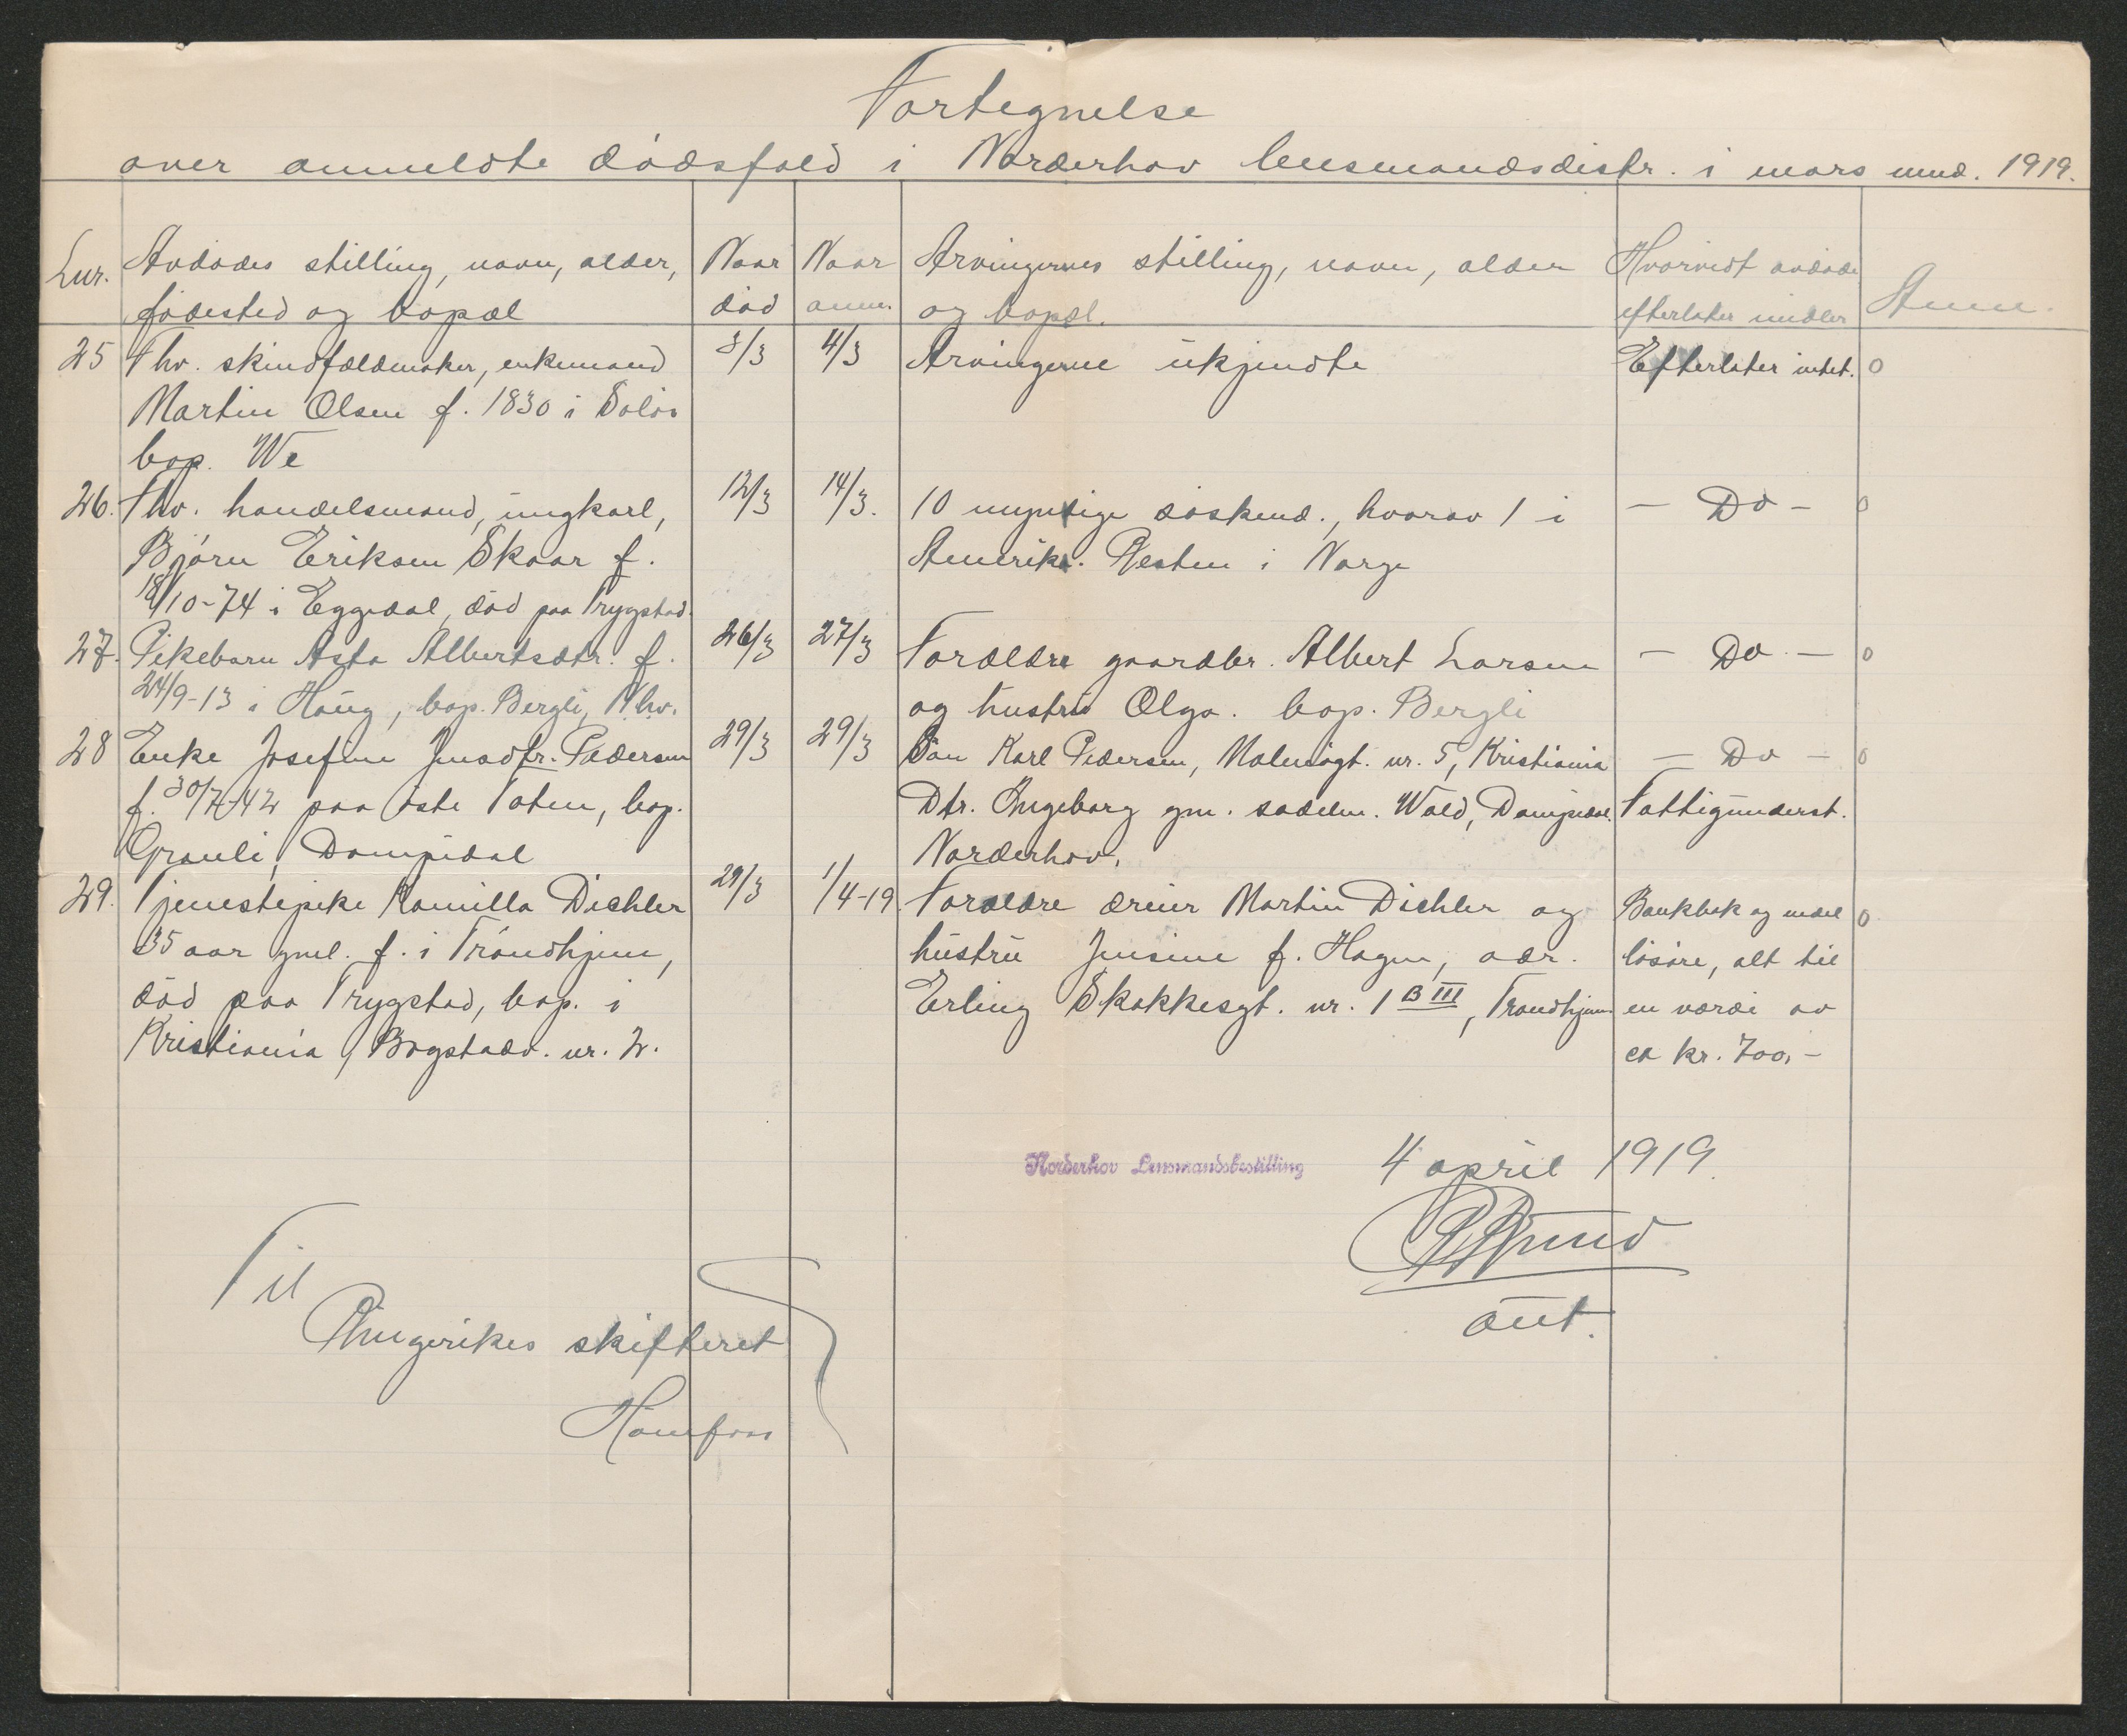 Fortegnelse
over anmeldte dødsfald i Norderhov lensmandsdistr. i mars mnd. 1919.
Lnr.
Avdødes stilling, navn, alder,
fødested og bopæl
Naar
død
Naar
anm.
Arvingernes stilling, navn, alder
og bopæl.
Hvorvidt avdøde
efterlater midler
Anm.
25 Fhv. skindfældmaker, enkemand 3/3 4/3 Arvingerne ukjendte Efterlater intet. 0
Martin Olsen f. 1830 i Solør
bop. We
26. Fhv. handelsmand, ungkarl, 12/3 14/3. 10 myndige søskend., hvorav 1 i - Do - 0
Bjørn Eriksen Skaar f. Amerika. Resten i Norge
18/10-74 i Eggedal, død paa Trygstad.
27. Pikebarn Asta Albertsdtr. f. 26/3 27/3 Forældre gaardbr. Albert Larsen - Do - 0
24/9-13 i Haug, bop. Bergli, Nhv. og hustru Olga. bop. Bergli
28 Enke Josefine Jensdtr. Pedersen 29/3 29/3 Søn Karl Pedersen, Malmøgt. nr. 5, Kristiania - Do - 0
f. 30/7-42 paa Øste Toten, bop. Dtr. Ingeborg gm. sadelm. Wold, Dampsdal. Fattigunderst.
Granli, Dampsdal Norderhov.
29. Tjenestepike Kamilla Dichler 29/3 1/4-19. Forældre dreier Martin Dichler og Bankbok og endel 0
35 aar gml. f. i Trondhjem, hustru Jensine f. Hagen, adr. løsøre, alt til
død paa Trygstad, bop. i Erling Skakkesgt. nr. 1 B III, Trondhjem en værdi av
Kristiania, Bogstadv. nr. 2. ca kr. 700,-
Norderhov Lensmandsbestilling 4 april 1919.
Til
Ringerikes skifteret
Hønefoss